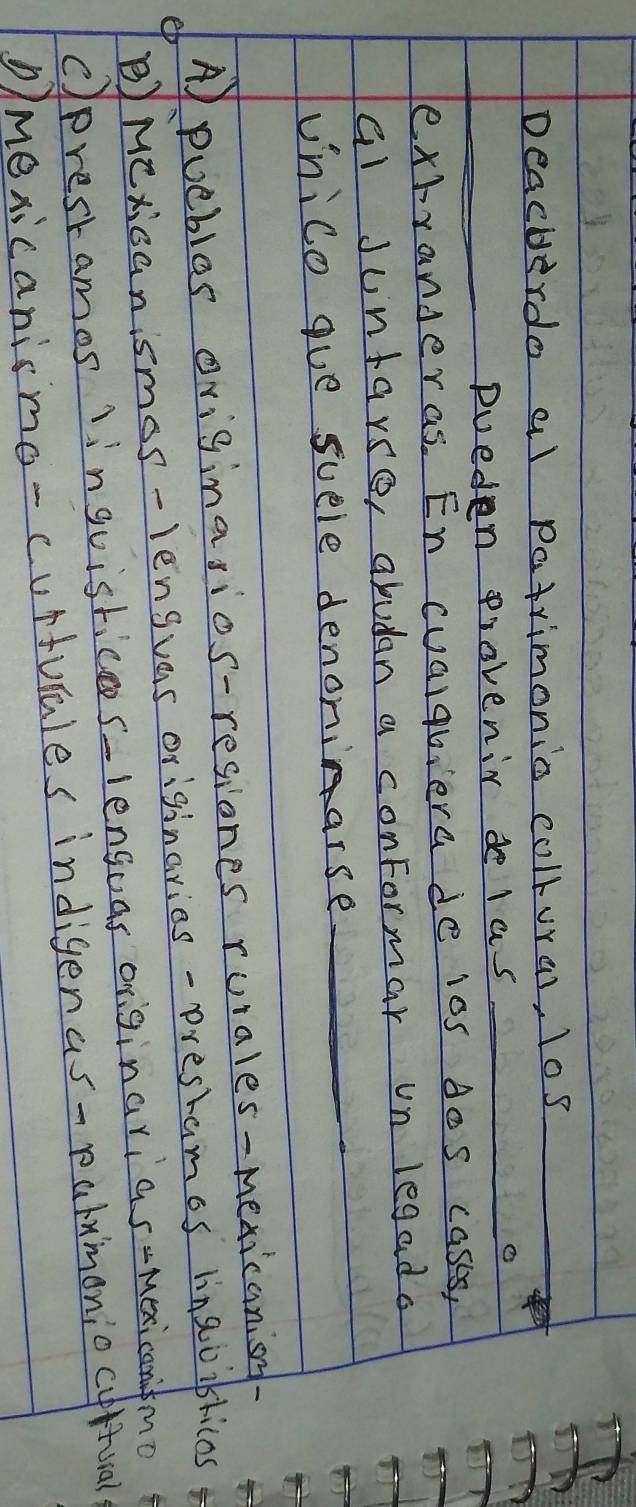 Deacuerdo al patrimonio cultural, los ______
______ pueden provenir de las ______ o
extranjeras. En cualquiera de los dos casos,
al juntarse, ayudan a conformar un legado
único que suele denominarse ______.
A) pueblos originarios-regiones rurales-Mexicanism-
o
B) Mexicanismos-lenguas originarias-prestamos linguisticos
C) prestamos linguisticos-lenguas originarias-Mexicanismo
D) Mexicanismo-culturales indigenas-patrimonio cultural